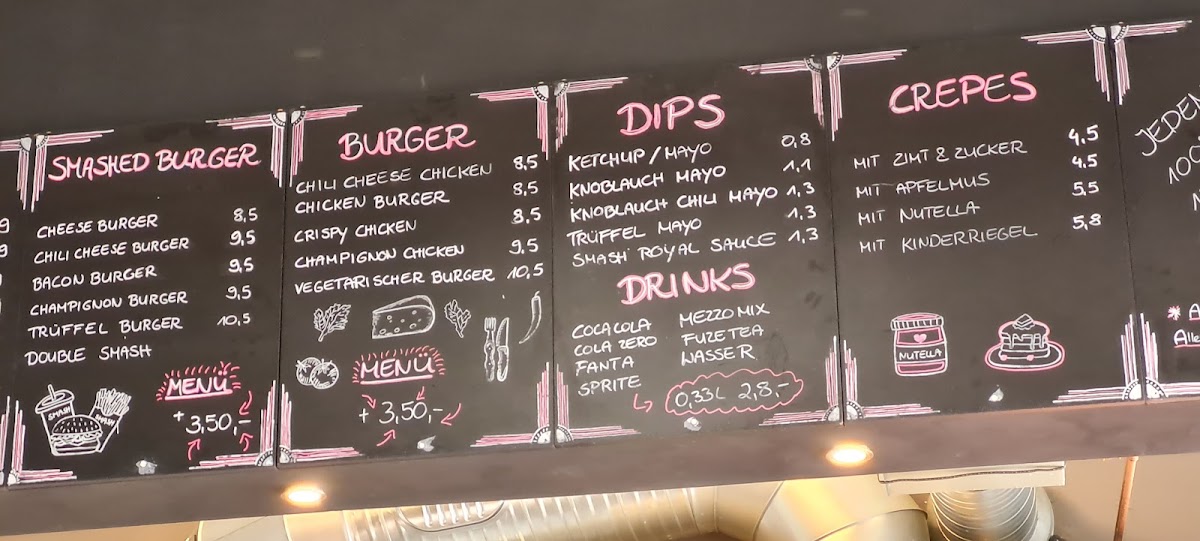 SMASHED BURGER
CHEESE BURGER 8,5
CHILI CHEESE BURGER 9,5
BACON BURGER 9,5
CHAMPIGNON BURGER 9,5
TRÜFFEL BURGER 10,5
DOUBLE SMASH
MENÜ
+ 3,50,-
SMASH
BURGER
CHILI CHEESE CHICKEN 8,5
CHICKEN BURGER 8,5
CRISPY CHICKEN 8,5
CHAMPIGNON CHICKEN 9,5
VEGETARISCHER BURGER 10,5
MENÜ
+ 3,50,-
DIPS
KETCHUP/MAYO 0,8
KNOBLAUCH MAYO 1,1
KNOBLAUCH CHILI MAYO 1,3
TRÜFFEL MAYO 1,3
SMASH ROYAL SAUCE 1,3
DRINKS
COCA COLA
COLA ZERO
FANTA
SPRITE
MEZZO MIX
FUZE TEA
WASSER
0,33L 2,8,-
CREPES
MIT ZIMT & ZUCKER 4,5
MIT APFELMUS 4,5
MIT NUTELLA 5,5
MIT KINDERRIEGEL 5,8
NUTELLA
JEDEN